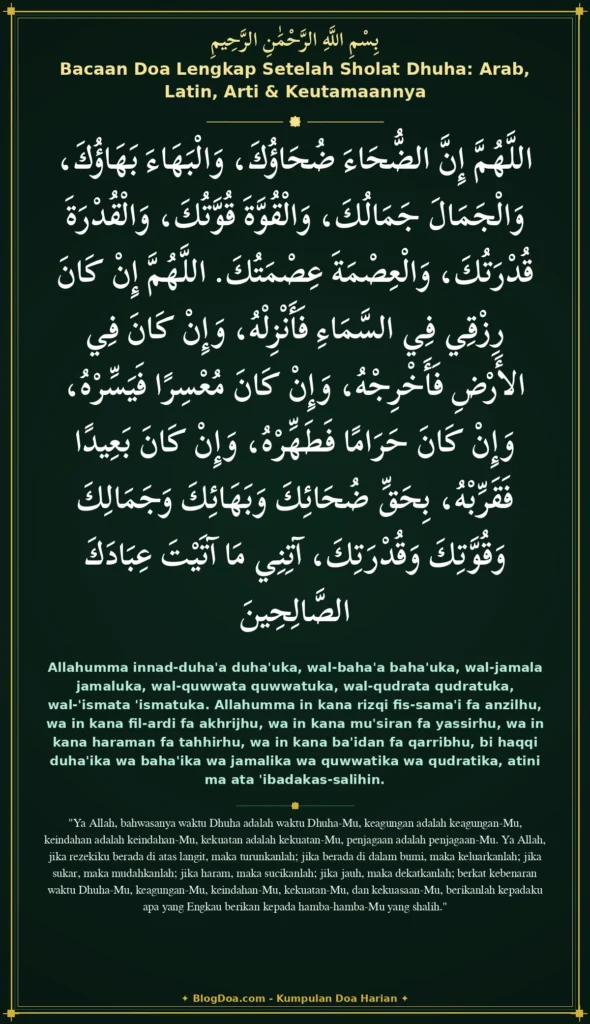 بِسْمِ اللَّهِ الرَّحْمَٰنِ الرَّحِيمِ
Bacaan Doa Lengkap Setelah Sholat Dhuha: Arab,
Latin, Arti & Keutamaannya
اللَّهُمَّ إِنَّ الضُّحَاءَ ضُحَاؤُكَ، وَالْبَهَاءَ بَهَاؤُكَ،
وَالْجَمَالَ جَمَالُكَ، وَالْقُوَّةَ قُوَّتُكَ، وَالْقُدْرَةَ
قُدْرَتُكَ، وَالْعِصْمَةَ عِصْمَتُكَ. اللَّهُمَّ إِنْ كَانَ
رِزْقِي فِي السَّمَاءِ فَأَنْزِلْهُ، وَإِنْ كَانَ فِي
الأَرْضِ فَأَخْرِجْهُ، وَإِنْ كَانَ مُعْسِرًا فَيَسِّرْهُ،
وَإِنْ كَانَ حَرَامًا فَطَهِّرْهُ، وَإِنْ كَانَ بَعِيدًا
فَقَرِّبْهُ، بِحَقِّ ضُحَائِكَ وَبَهَائِكَ وَجَمَالِكَ
وَقُوَّتِكَ وَقُدْرَتِكَ، آتِنِي مَا آتَيْتَ عِبَادَكَ
الصَّالِحِينَ
Allahumma innad-duha'a duha'uka, wal-baha'a baha'uka, wal-jamala
jamaluka, wal-quwwata quwwatuka, wal-qudrata qudratuka,
wal-'ismata 'ismatuka. Allahumma in kana rizqi fis-sama'i fa anzilhu,
wa in kana fil-ardi fa akhrijhu, wa in kana mu'siran fa yassirhu, wa in
kana haraman fa tahhirhu, wa in kana ba'idan fa qarribhu, bi haqqi
duha'ika wa baha'ika wa jamalika wa quwwatika wa qudratika, atini
ma ata 'ibadakas-salihin.
"Ya Allah, bahwasanya waktu Dhuha adalah waktu Dhuha-Mu, keagungan adalah keagungan-Mu,
keindahan adalah keindahan-Mu, kekuatan adalah kekuatan-Mu, penjagaan adalah penjagaan-Mu. Ya Allah,
jika rezekiku berada di atas langit, maka turunkanlah; jika berada di dalam bumi, maka keluarkanlah; jika
sukar, maka mudahkanlah; jika haram, maka sucikanlah; jika jauh, maka dekatkanlah; berkat kebenaran
waktu Dhuha-Mu, keagungan-Mu, keindahan-Mu, kekuatan-Mu, dan kekuasaan-Mu, berikanlah kepadaku
apa yang Engkau berikan kepada hamba-hamba-Mu yang shalih."
✦ BlogDoa.com - Kumpulan Doa Harian ✦